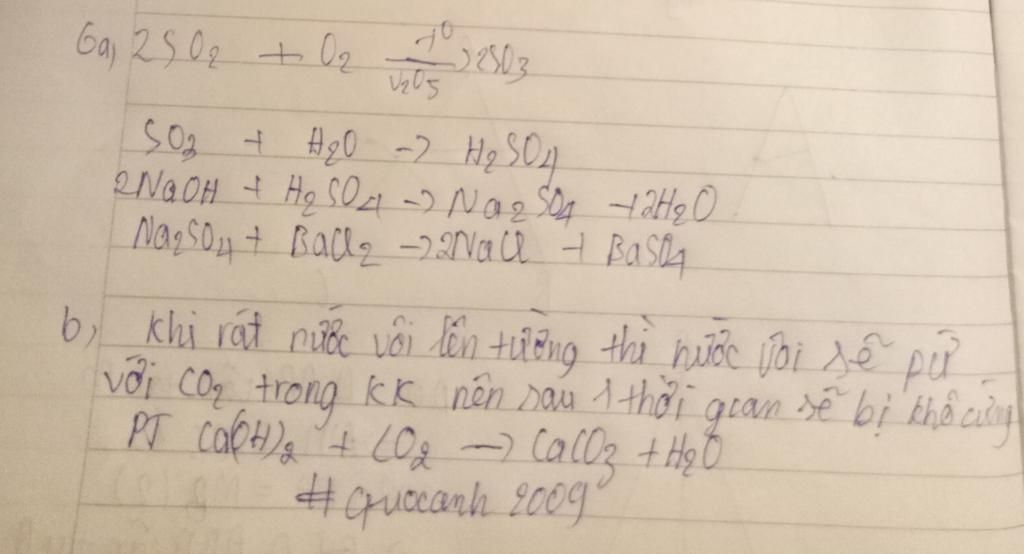 6a, 2SO2 + O2 t° V2O5 → 2SO3
SO3 + H2O → H2SO4
2NaOH + H2SO4 → Na2SO4 + 2H2O
Na2SO4 + BaCl2 → 2NaCl + BaSO4
b, Khi rát nước vôi lên tường thì nước vôi sẽ pứ
với CO2 trong KK nên sau 1 thời gian sẽ bị khô cứng
PT Ca(OH)2 + CO2 → CaCO3 + H2O
# Quocanh 2009